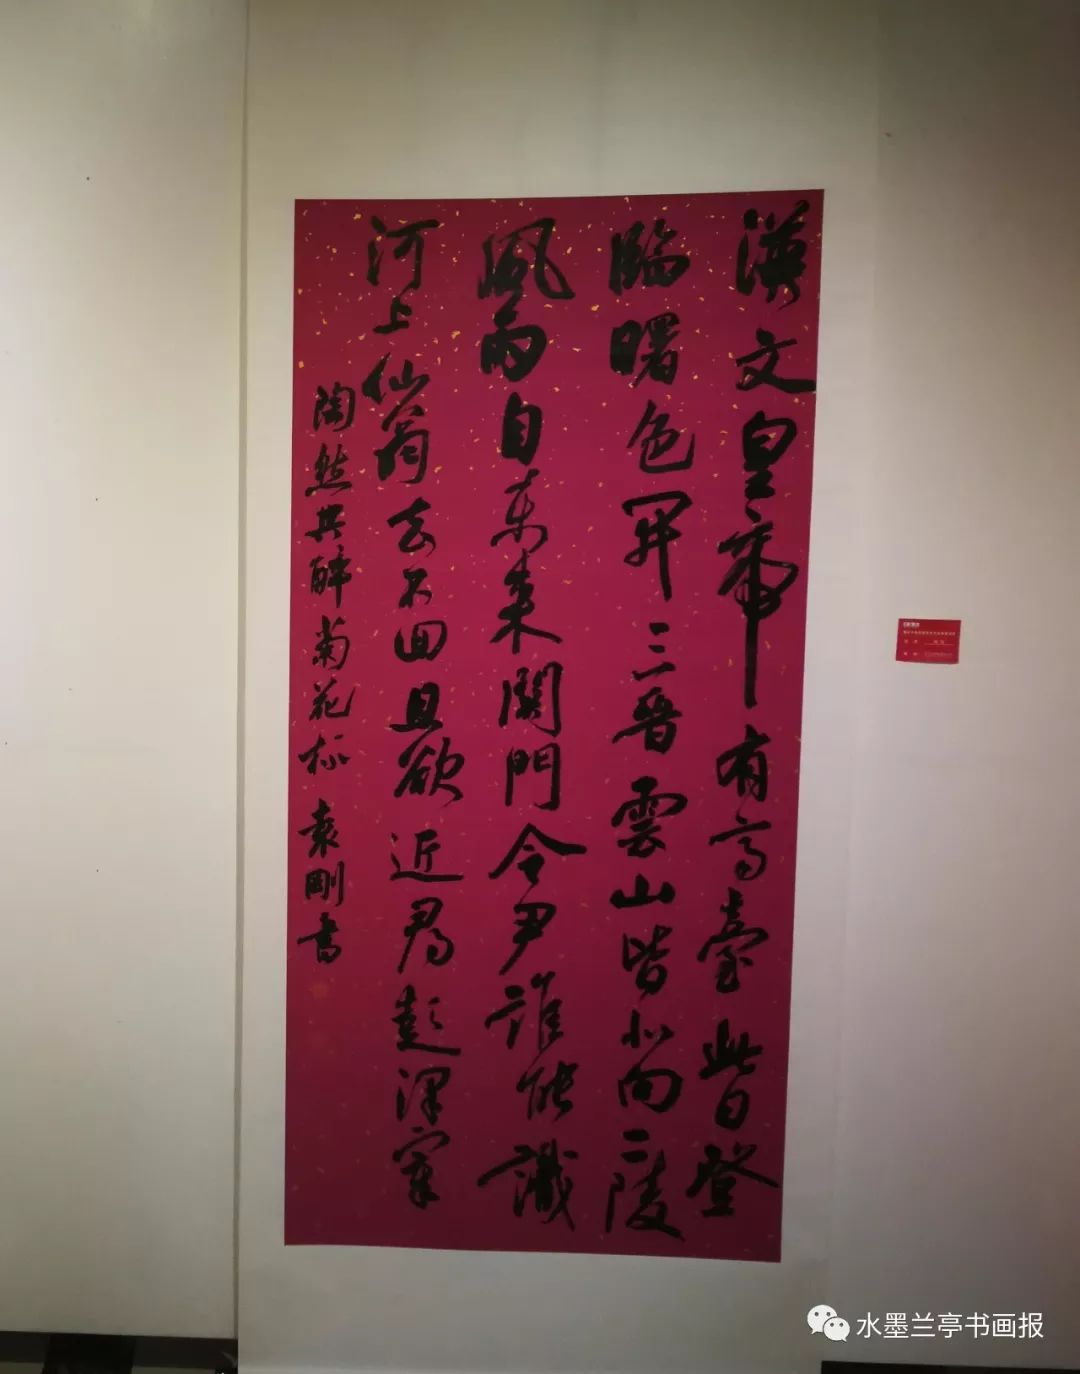 漢文皇帝有高臺此日登
臨曙色開三晉雲山皆北向二陵
風雨自東來關門令尹誰能識
河上仙翁去不回且欲近尋彭澤宰
陶然共醉菊花杯 袁剛書
水墨兰亭书画报